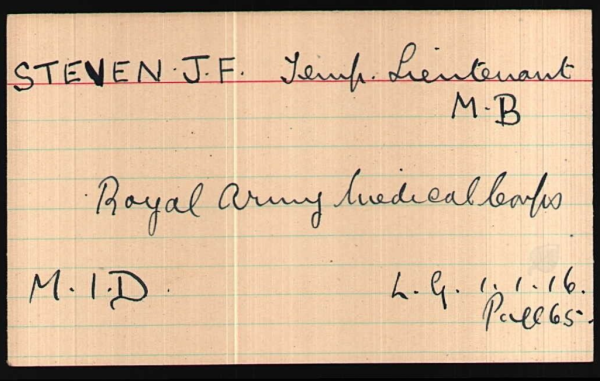 STEVEN. J. F. Temp. Lieutenant
M.B
Royal Army Medical Corps
M.I.D.
L.G. 1.1.16.
Page 65.